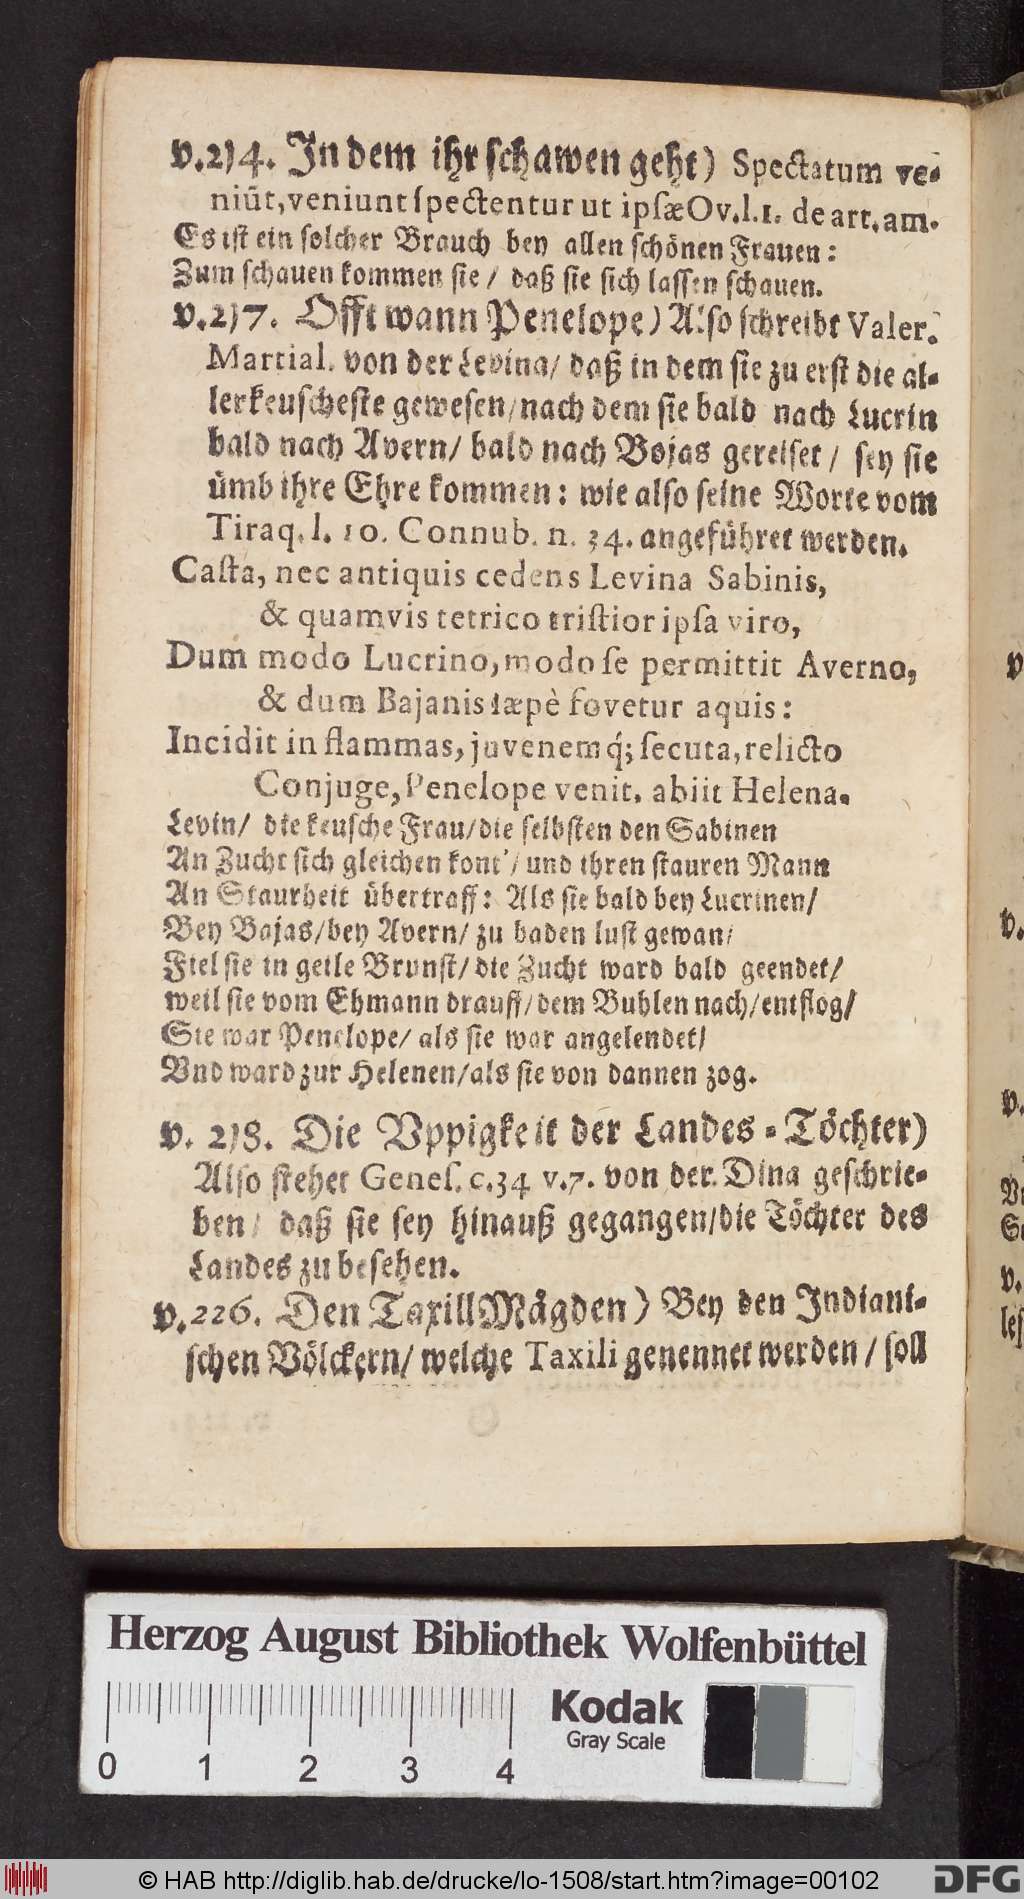 v.214. In dem ihr schawen geht) Spectatum ve-
niũt, veniunt spectentur ut ipsæ Ov. l. 1. de art. am.
Es ist ein solcher Brauch bey allen schönen Frauen:
Zum schauen kommen sie/ daß sie sich lassen schauen.
v.217. Offt wann Penelope) Also schreibt Valer.
Martial. von der Levina/ daß in dem sie zu erst die al-
lerkeuscheste gewesen/ nach dem sie bald nach Lucrin
bald nach Avern/ bald nach Bojas gereiset/ sey sie
ümb ihre Ehre kommen: wie also seine Worte vom
Tiraq. l. 10. Connub. n. 34. angeführet werden.
Casta, nec antiquis cedens Levina Sabinis,
& quamvis tetrico tristior ipsa viro,
Dum modo Lucrino, modo se permittit Averno,
& dum Bajanis sæpè fovetur aquis:
Incidit in flammas, juvenemq́; secuta, relicto
Conjuge, Penelope venit, abiit Helena.
Levin/ die keusche Frau/ die selbsten den Sabinen
An Zucht sich gleichen kont'/ und ihren stauren Mann
An Staurheit übertraff: Als sie bald bey Lucrinen/
Bey Bajas/ bey Avern/ zu baden lust gewan/
Fiel sie in geile Brunst/ die Zucht ward bald geendet/
weil sie vom Ehmann drauff/ dem Buhlen nach/ entflog/
Sie war Penelope/ als sie war angelendet/
Vnd ward zur Helenen/ als sie von dannen zog.
v. 218. Die Vppigkeit der Landes-Töchter)
Also stehet Genes. c.34 v.7. von der Dina geschrie-
ben/ daß sie sey hinauß gegangen/ die Töchter des
Landes zu besehen.
v.226. Den Taxill Mägden) Bey den Indiani-
schen Völckern/ welche Taxili genennet werden/ soll
Herzog August Bibliothek Wolfenbüttel
Kodak
Gray Scale
0 1 2 3 4
© HAB http://diglib.hab.de/drucke/lo-1508/start.htm?image=00102
DFG